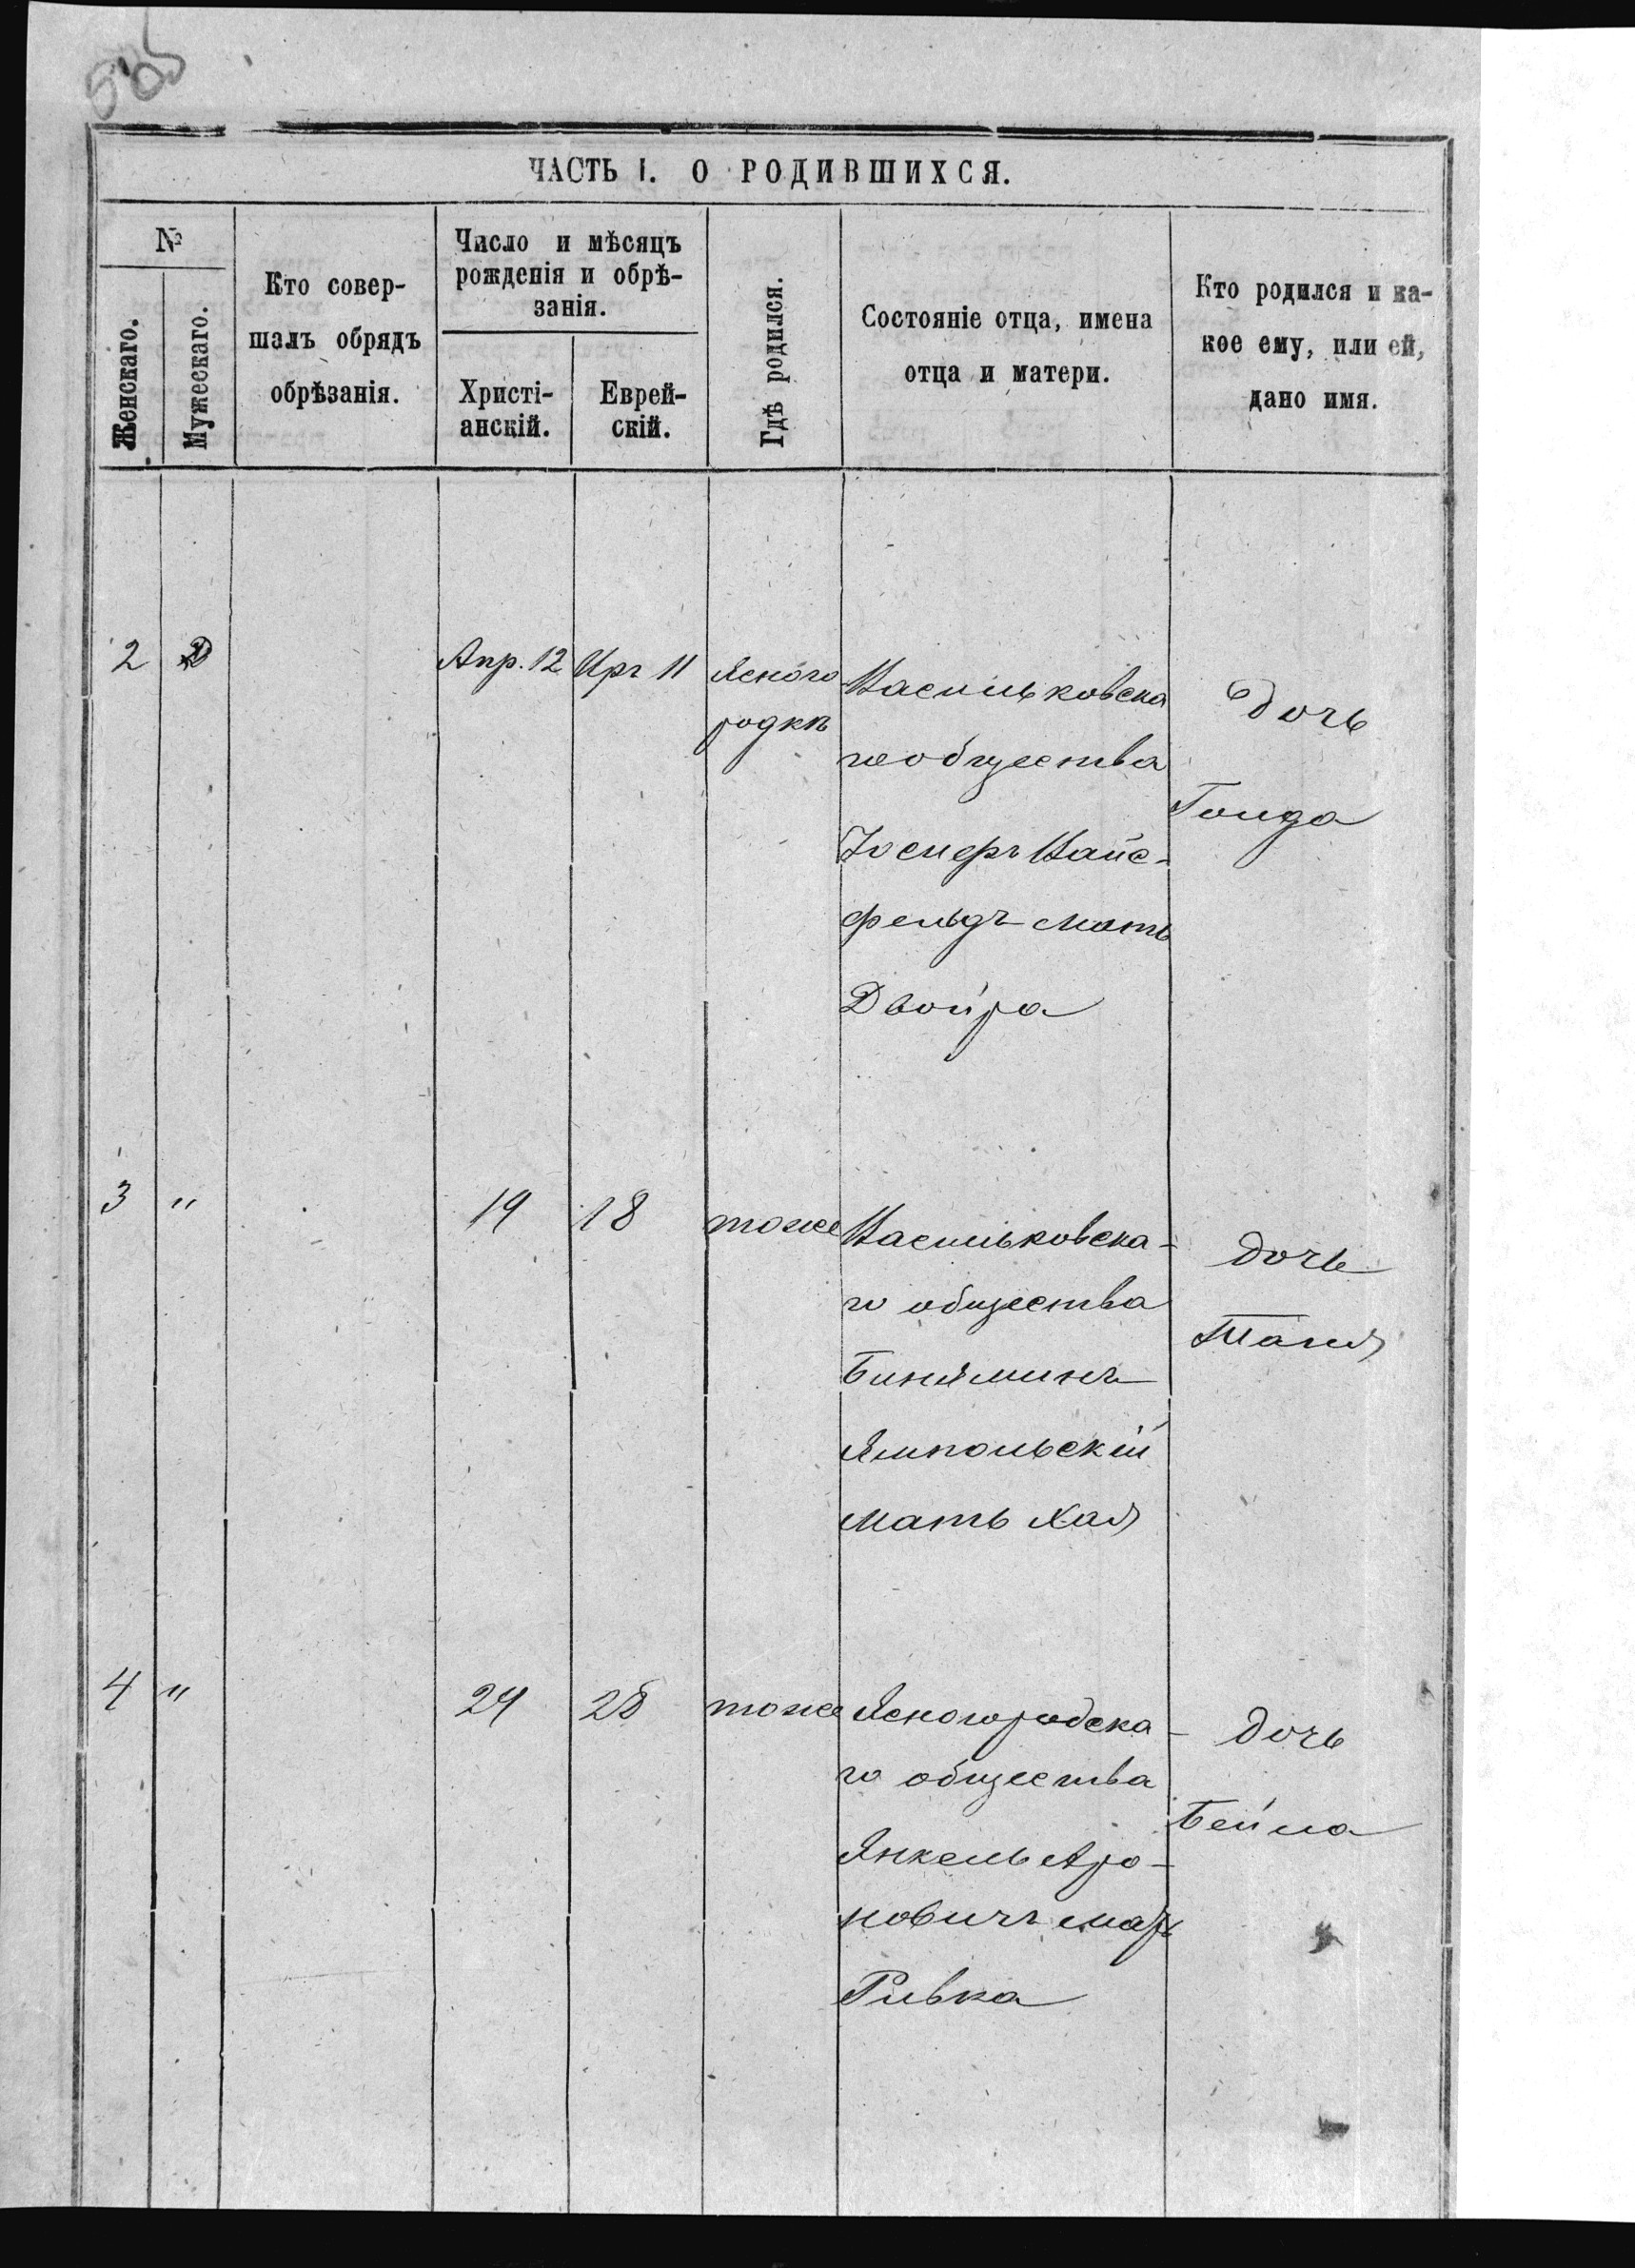 505
ЧАСТЬ I. О РОДИВШИХСЯ.
№
Женскаго.
Мужескаго.
Кто совер-
шалъ обрядъ
обрѣзанія.
Число и мѣсяцъ
рожденія и обрѣ-
занія.
Христі-
анскій.
Еврей-
скій.
Гдѣ родился.
Состояніе отца, имена
отца и матери.
Кто родился и ка-
кое ему, или ей,
дано имя.
2
Апр. 12
Иръ 11
Ясного-
родкѣ
Васильковска
го общества
Іосифъ Вайс-
фельдъ мать
Двойра
дочь
Голда
3 "
19
18
тоже
Васильковска-
го общества
Биняминъ
Ямпольскій
мать Хая
дочь
4 "
24
тоже
Ясногородска-
го общества
Янкель Аро-
новичъ мать
Ривка
дочь
Бейла